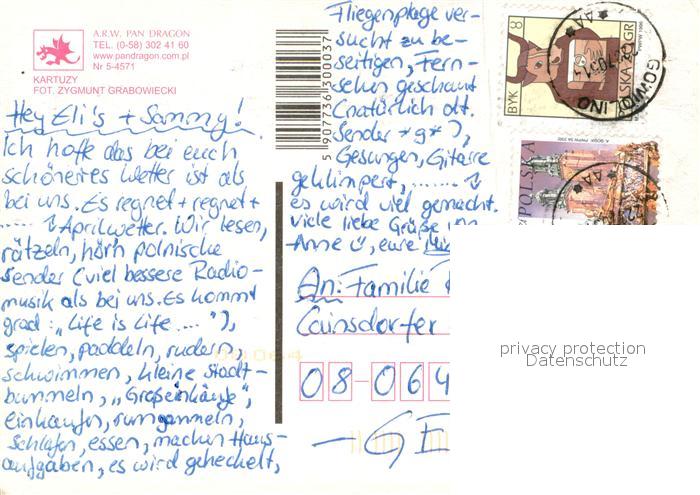 A.R.W. PAN DRAGON
TEL. (0-58) 302 41 60
www.pandragon.com.pl
Nr 5-4571
KARTUZY
FOT. ZYGMUNT GRABOWIECKI
5 907736 300037
Hey Eli's + Sammy!
Ich hoffe das bei euch
schöneres Wetter ist als
bei uns. Es regnet + regnet +
...... Aprilwetter. Wir lesen,
rätzeln, hörn polnische
Sender (viel bessere Radio-
musik als bei uns. Es kommt
grad: „Life is Life ...."),
spielen, paddeln, rudern,
schwimmen, kleine Stadt-
bummeln, „Großeinkäufe",
einkaufen, rumgammeln,
schlafen, essen, machen Haus-
aufgaben, es wird geheckelt,
Fliegenplage ver-
sucht zu be-
seitigen, Fern-
sehen geschaut
(natürlich dt.
Sender *g*),
Gesungen, Gitarre
geklimpert, .......
es wird viel gemacht.
Viele liebe Grüße
Anne, eure
An: Familie
Cainsdorfer
08-064
BYK
8
POLSKA
GOWIDLINO
POLSKA
privacy protection
Datenschutz